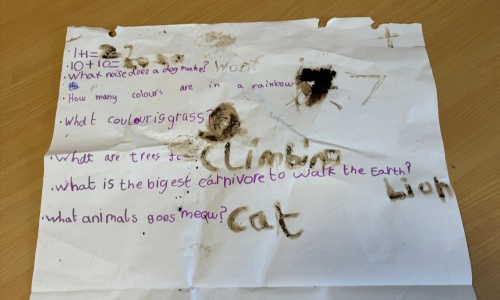 1+1= 2
10+10= 20
What noise does a dog make? Woof
How many colours are in a rainbow 7
What coulour is grass?
What are trees for Climbing
What is the bigest carnivore to walk the Earth?
Lion
what animals goes meow? cat